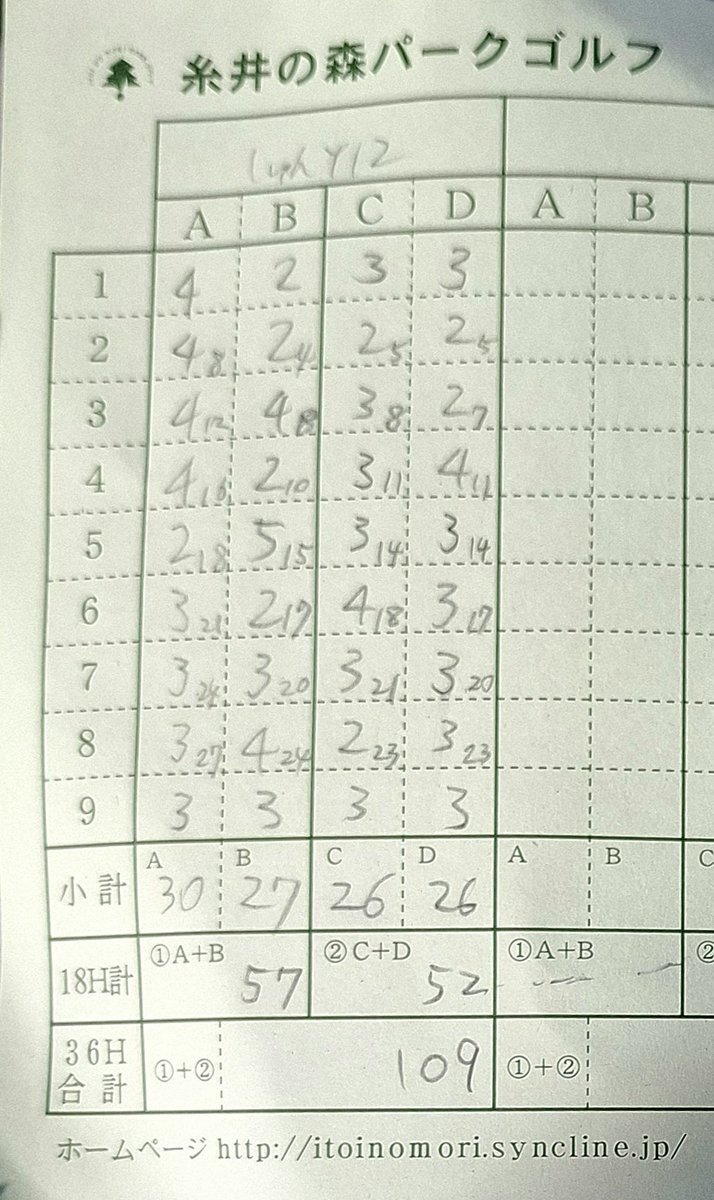 糸井の森パークゴルフ
A B C D A B
1 4 2 3 3
2 4 8 2 4 2 5 2 5
3 4 12 4 8 3 8 2 7
4 4 16 2 10 3 11 4 11
5 2 18 5 15 3 14 3 14
6 3 21 2 17 4 18 3 17
7 3 24 3 20 3 21 3 20
8 3 27 4 24 2 23 3 23
9 3 3 3 3
小計 A 30 B 27 C 26 D 26 A B C
18H計 ①A+B 57 ②C+D 52 ①A+B ②
36H合計 ①+② 109 ①+②
ホームページ http://itoinomori.syncline.jp/